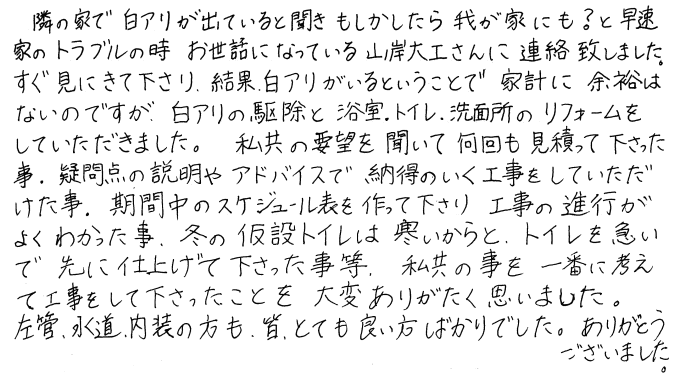 隣の家で白アリが出ていると聞きもしかしたら我が家にも?と早速
家のトラブルの時 お世話になっている山岸大工さんに連絡致しました。
すぐ見にきて下さり、結果、白アリがいるということで家計に余裕は
ないのですが、白アリの駆除と浴室、トイレ、洗面所のリフォームを
していただきました。 私共の要望を聞いて何回も見積って下さった
事、疑問点の説明やアドバイスで納得のいく工事をしていただ
けた事、期間中のスケジュール表を作って下さり工事の進行が
よくわかった事、冬の仮設トイレは寒いからと、トイレを急い
で先に仕上げて下さった事等、私共の事を一番に考え
て工事をして下さったことを大変ありがたく思いました。
左管、水道、内装の方も、皆、とても良い方ばかりでした。ありがとう
ございました。